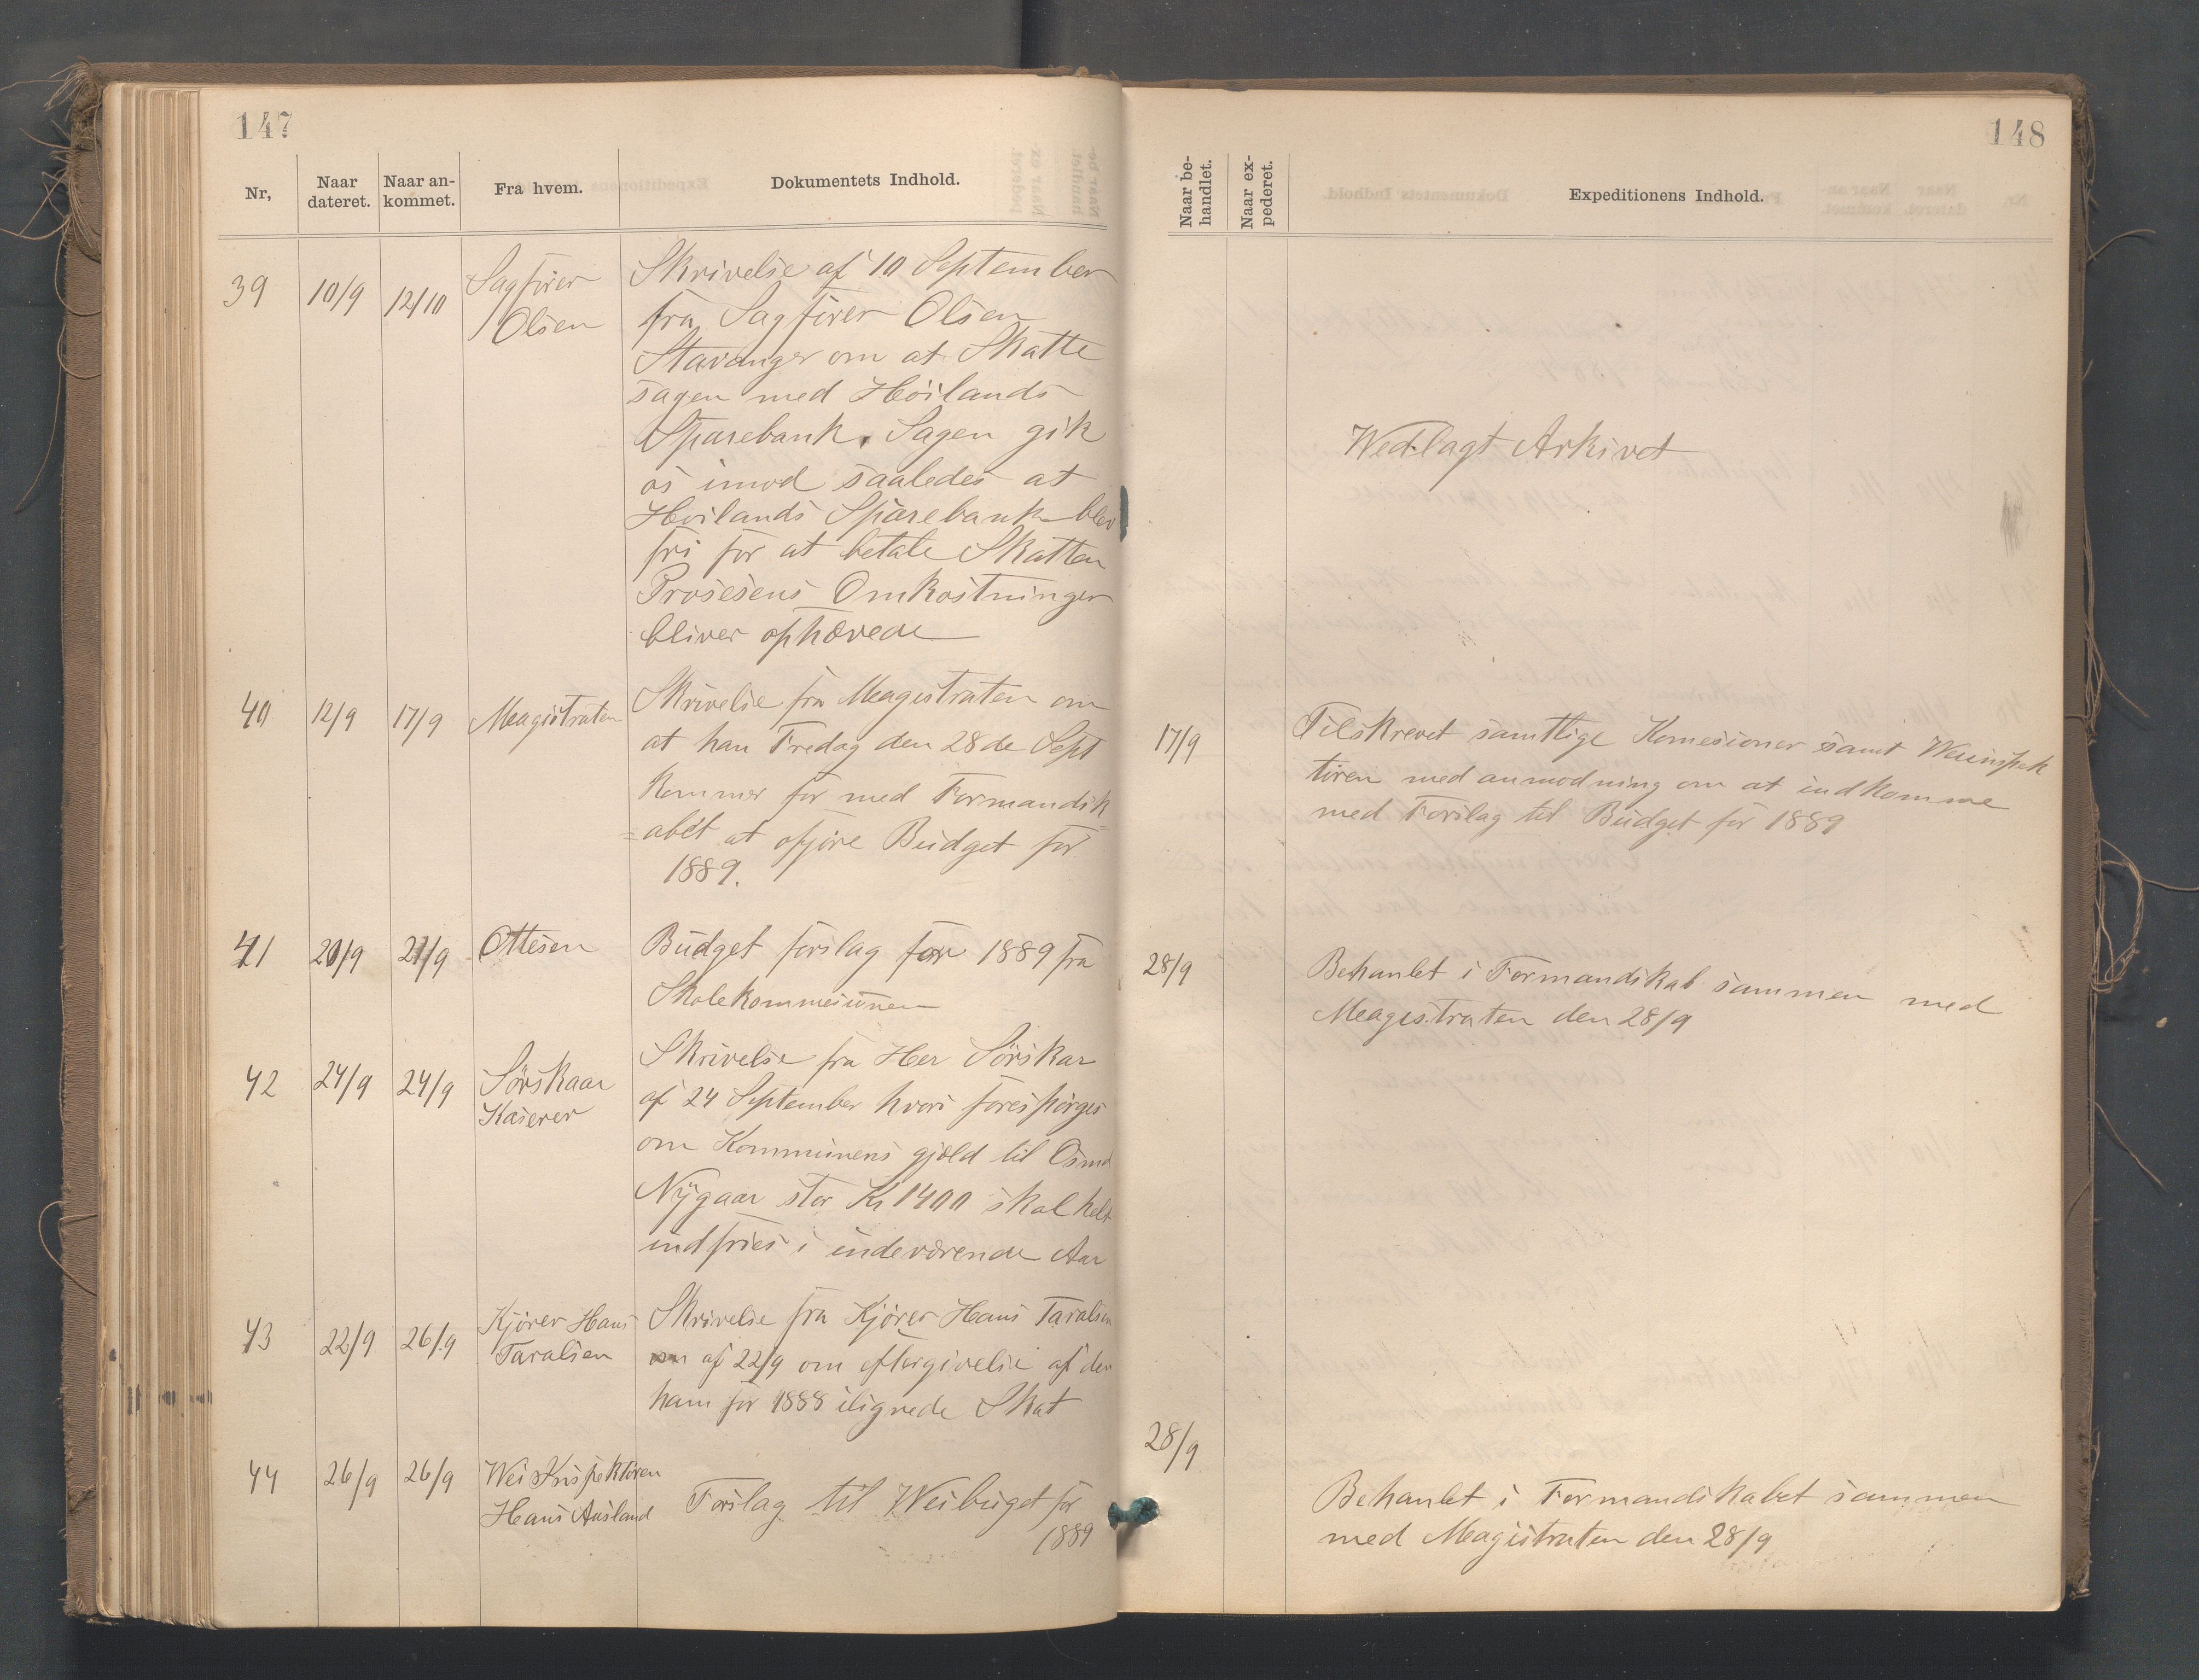 147
Nr,
Naar dateret.
Naar an-
kommet.
Fra hvem.
Dokumentets Indhold.
39
10/9
12/10
Sagfører
Olsen
Skrivelse af 10 September
fra Sagfører Olsen
Stavanger om at Skatte
sagen med Høilands
Sparebank. Sagen gik
os imod saaledes at
Høilands Sparebank blev
fri for at betale Skatten
Prosesens Omkostninger
bliver ophævede
40
12/9
17/9
Magistraten
Skrivelse fra Magistraten om
at han Fredag den 28de Sept
kommer for med Formandsk
=abet at opgjøre Budget for
1889.
41
20/9
21/9
Ottesen
Budget forslag for 1889 fra
Skolekommesionen
42
24/9
24/9
Sørskaar
Kaserer
Skrivelse fra Her Sørskar
af 24 September hvori forespørges
om Kommunens gjæld til Osmd
Nygaar stor Kr 1400 skal helt
indfries i indeværende Aar
43
22/9
26/9
Kjører Hans
Taralsen
Skrivelse fra Kjører Hans Taralsen
af 22/9 om eftergivelse af den
ham for 1888 ilignede Skat
44
26/9
26/9
Wei Inspektøren
Hans Ausland
Forslag til Weibuget for
1889
148
Naar be-
handlet.
Naar ex-
pederet.
Expeditionens Indhold.
Wedlagt Arkivet
17/9
Tilskrevet samtlige Komesioner samt Weiinspek
tøren med anmodning om at indkomme
med Forslag til Budget for 1889
28/9
Behanlet i Formandskab sammen med
Magistraten den 28/9
28/9
Behanlet i Formandskabet sammen
med Magistraten den 28/9